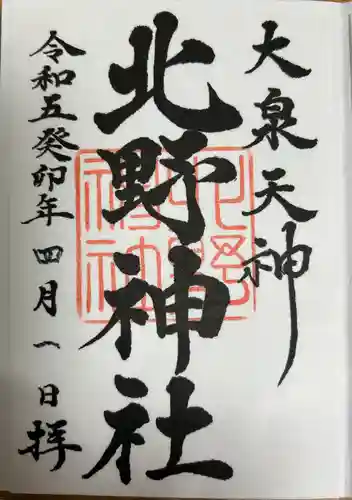 大泉天神
北野神社
北野
神社
令和五癸卯年四月一日拝